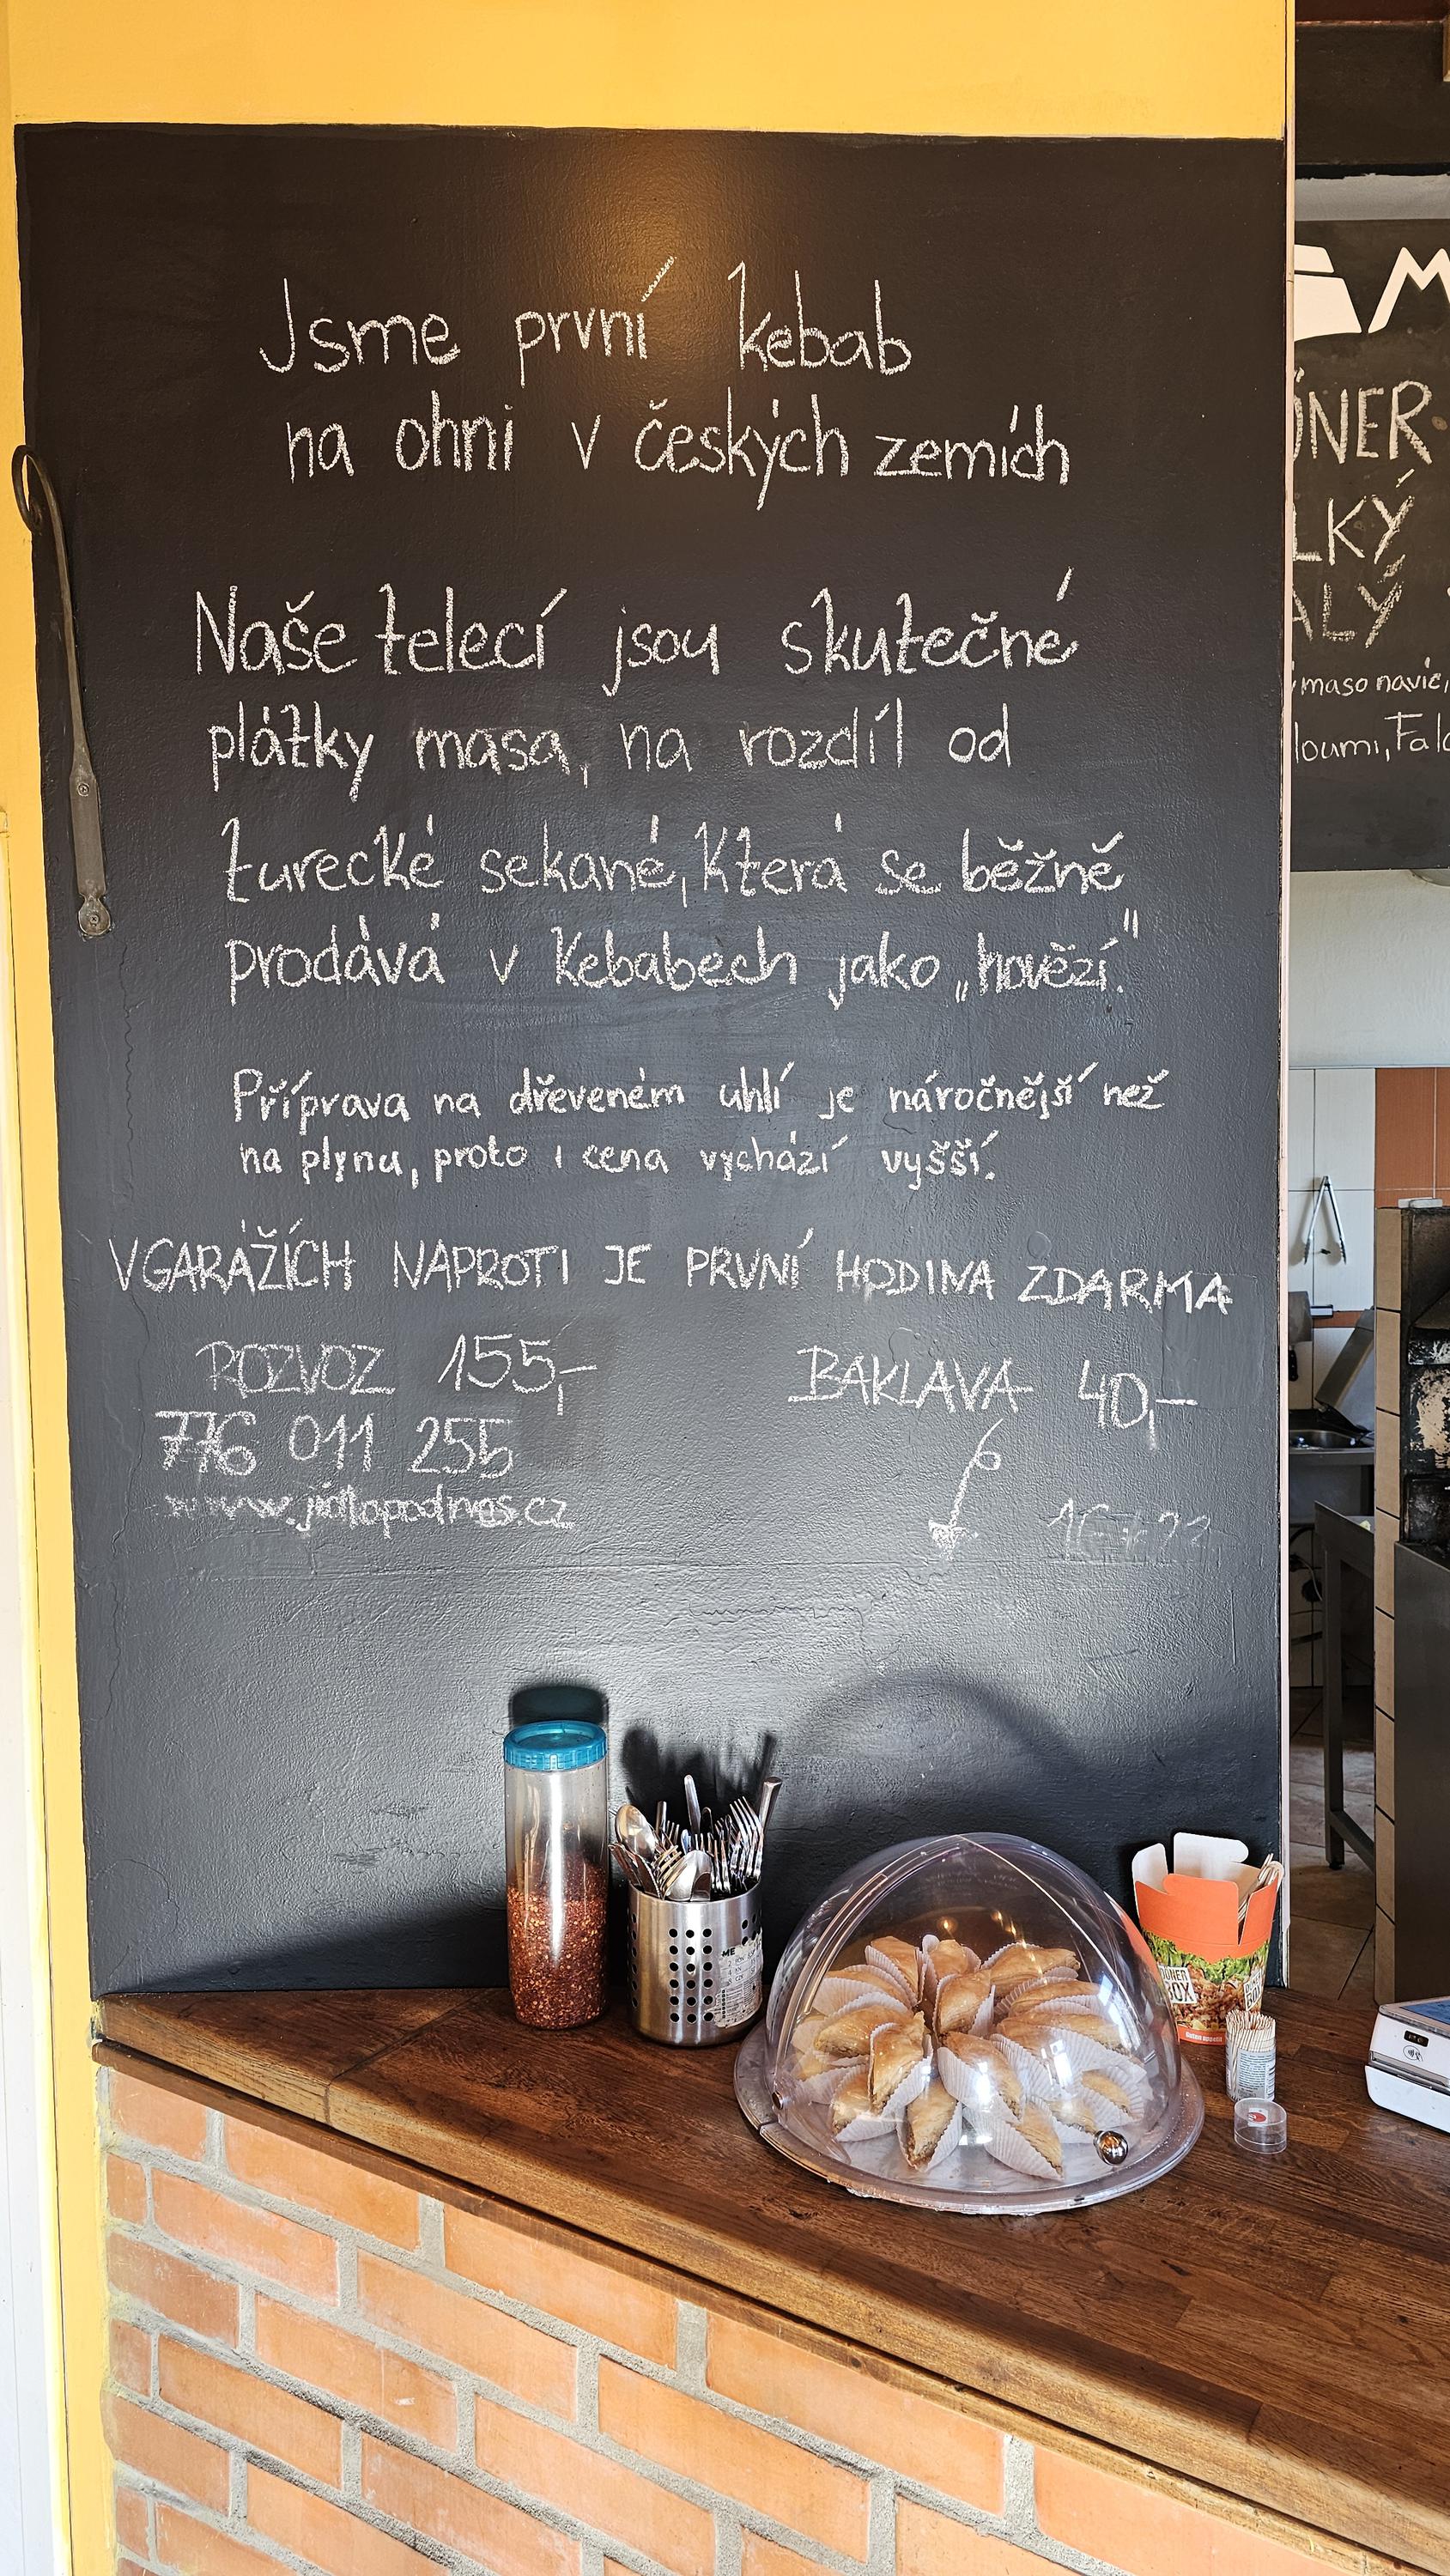 Jsme první kebab
na ohni v českých zemích
Naše telecí jsou skutečné
plátky masa, na rozdíl od
turecké sekané, která se běžně
prodává v kebabech jako „hovězí."
Příprava na dřeveném uhlí je náročnější než
na plynu, proto i cena vychází vyšší.
V GARÁŽÍCH NAPROTI JE PRVNÍ HODINA ZDARMA
ROZVOZ 155,-
776 011 255
www.jidlopodnos.cz
BAKLAVA 40,-
M
ÖNER
LKÝ
ALÝ
maso navíc,
loumi, Fala
DÖNER
BOX